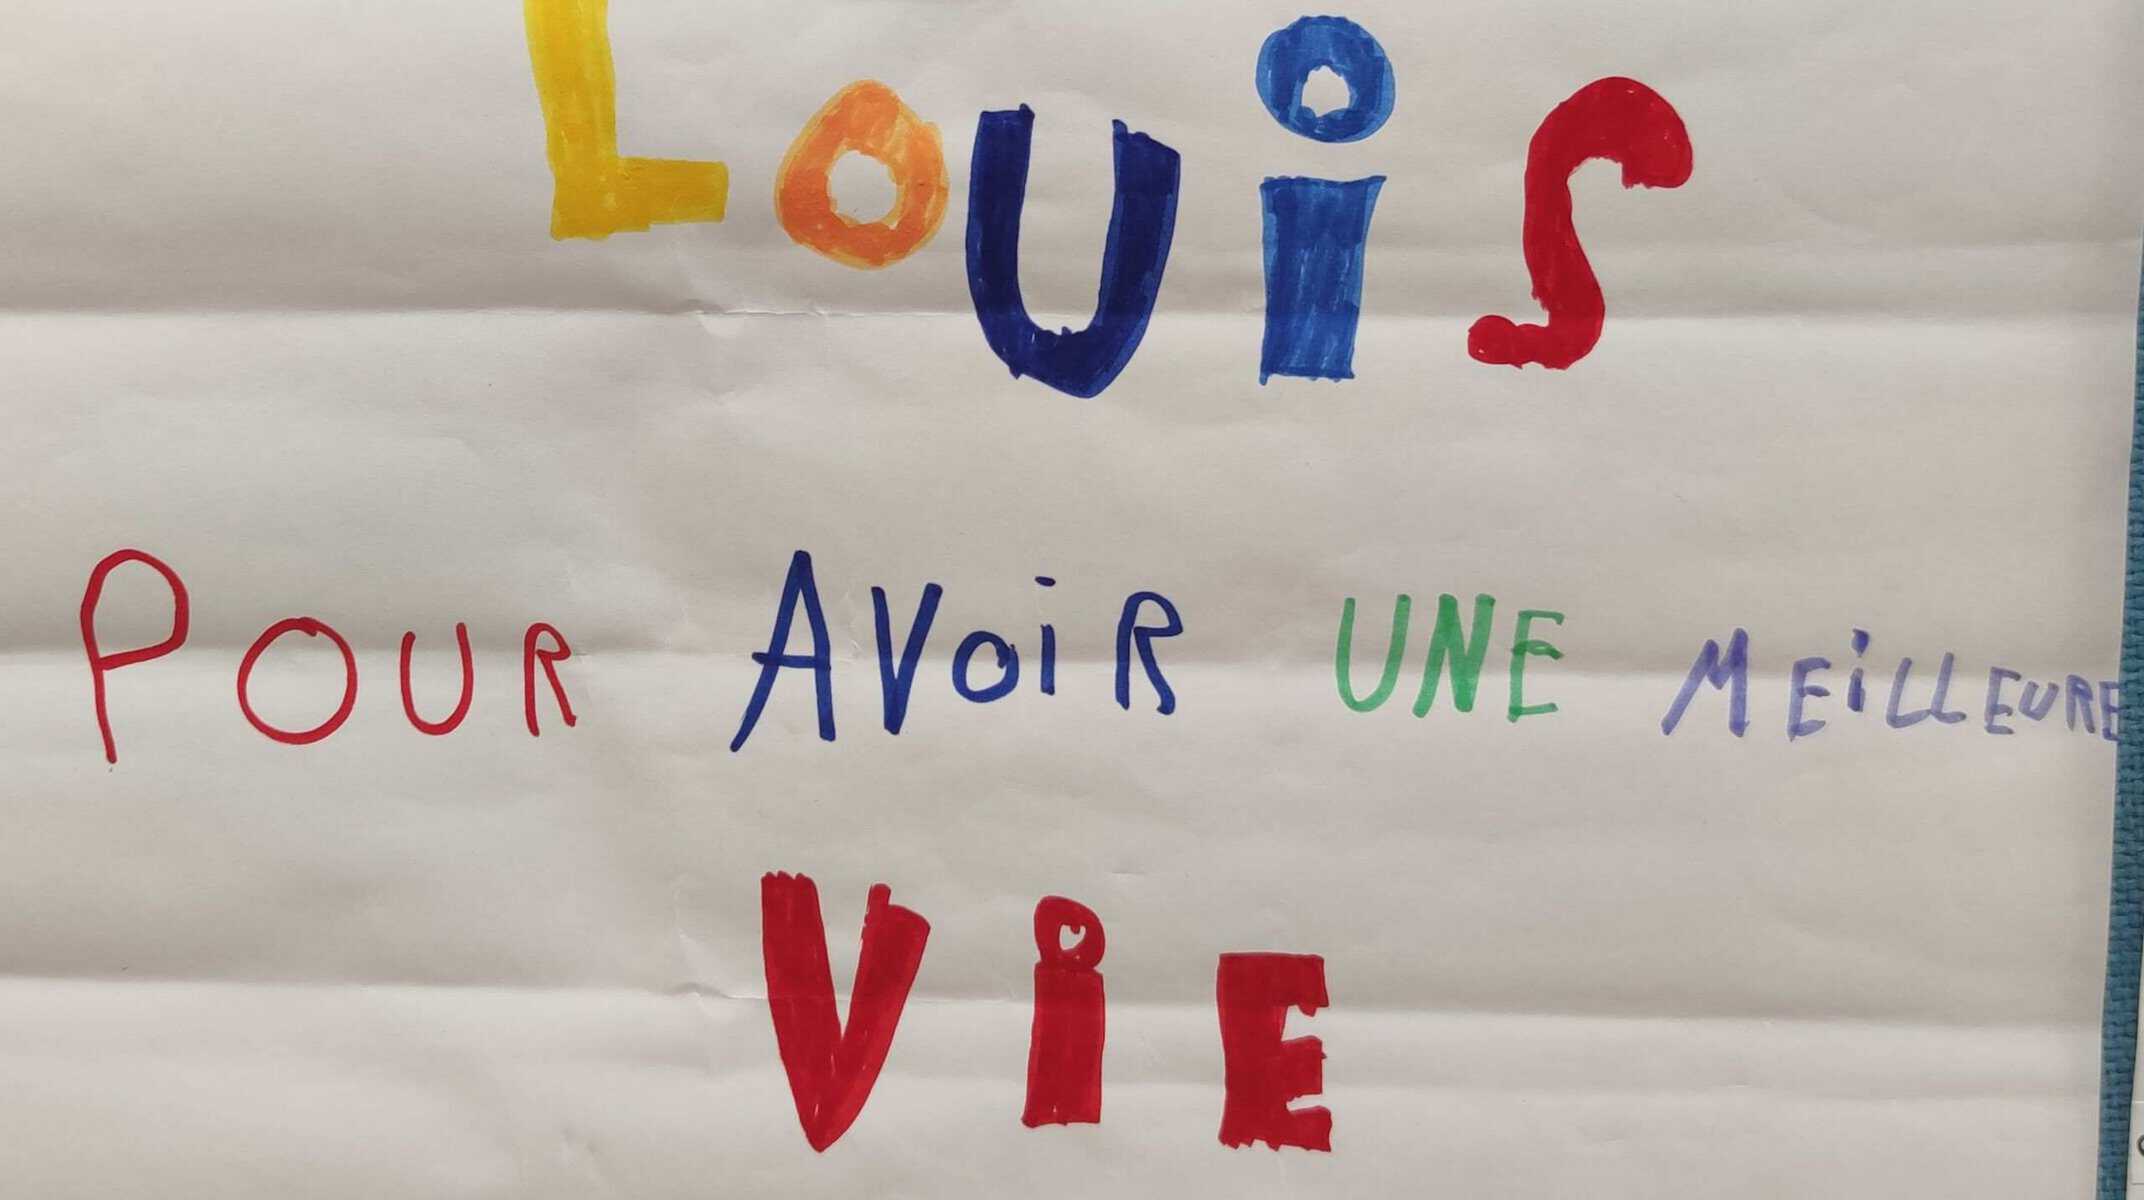 LOUiS
POUR AVOiR UNE MEiLLEURE
ViE